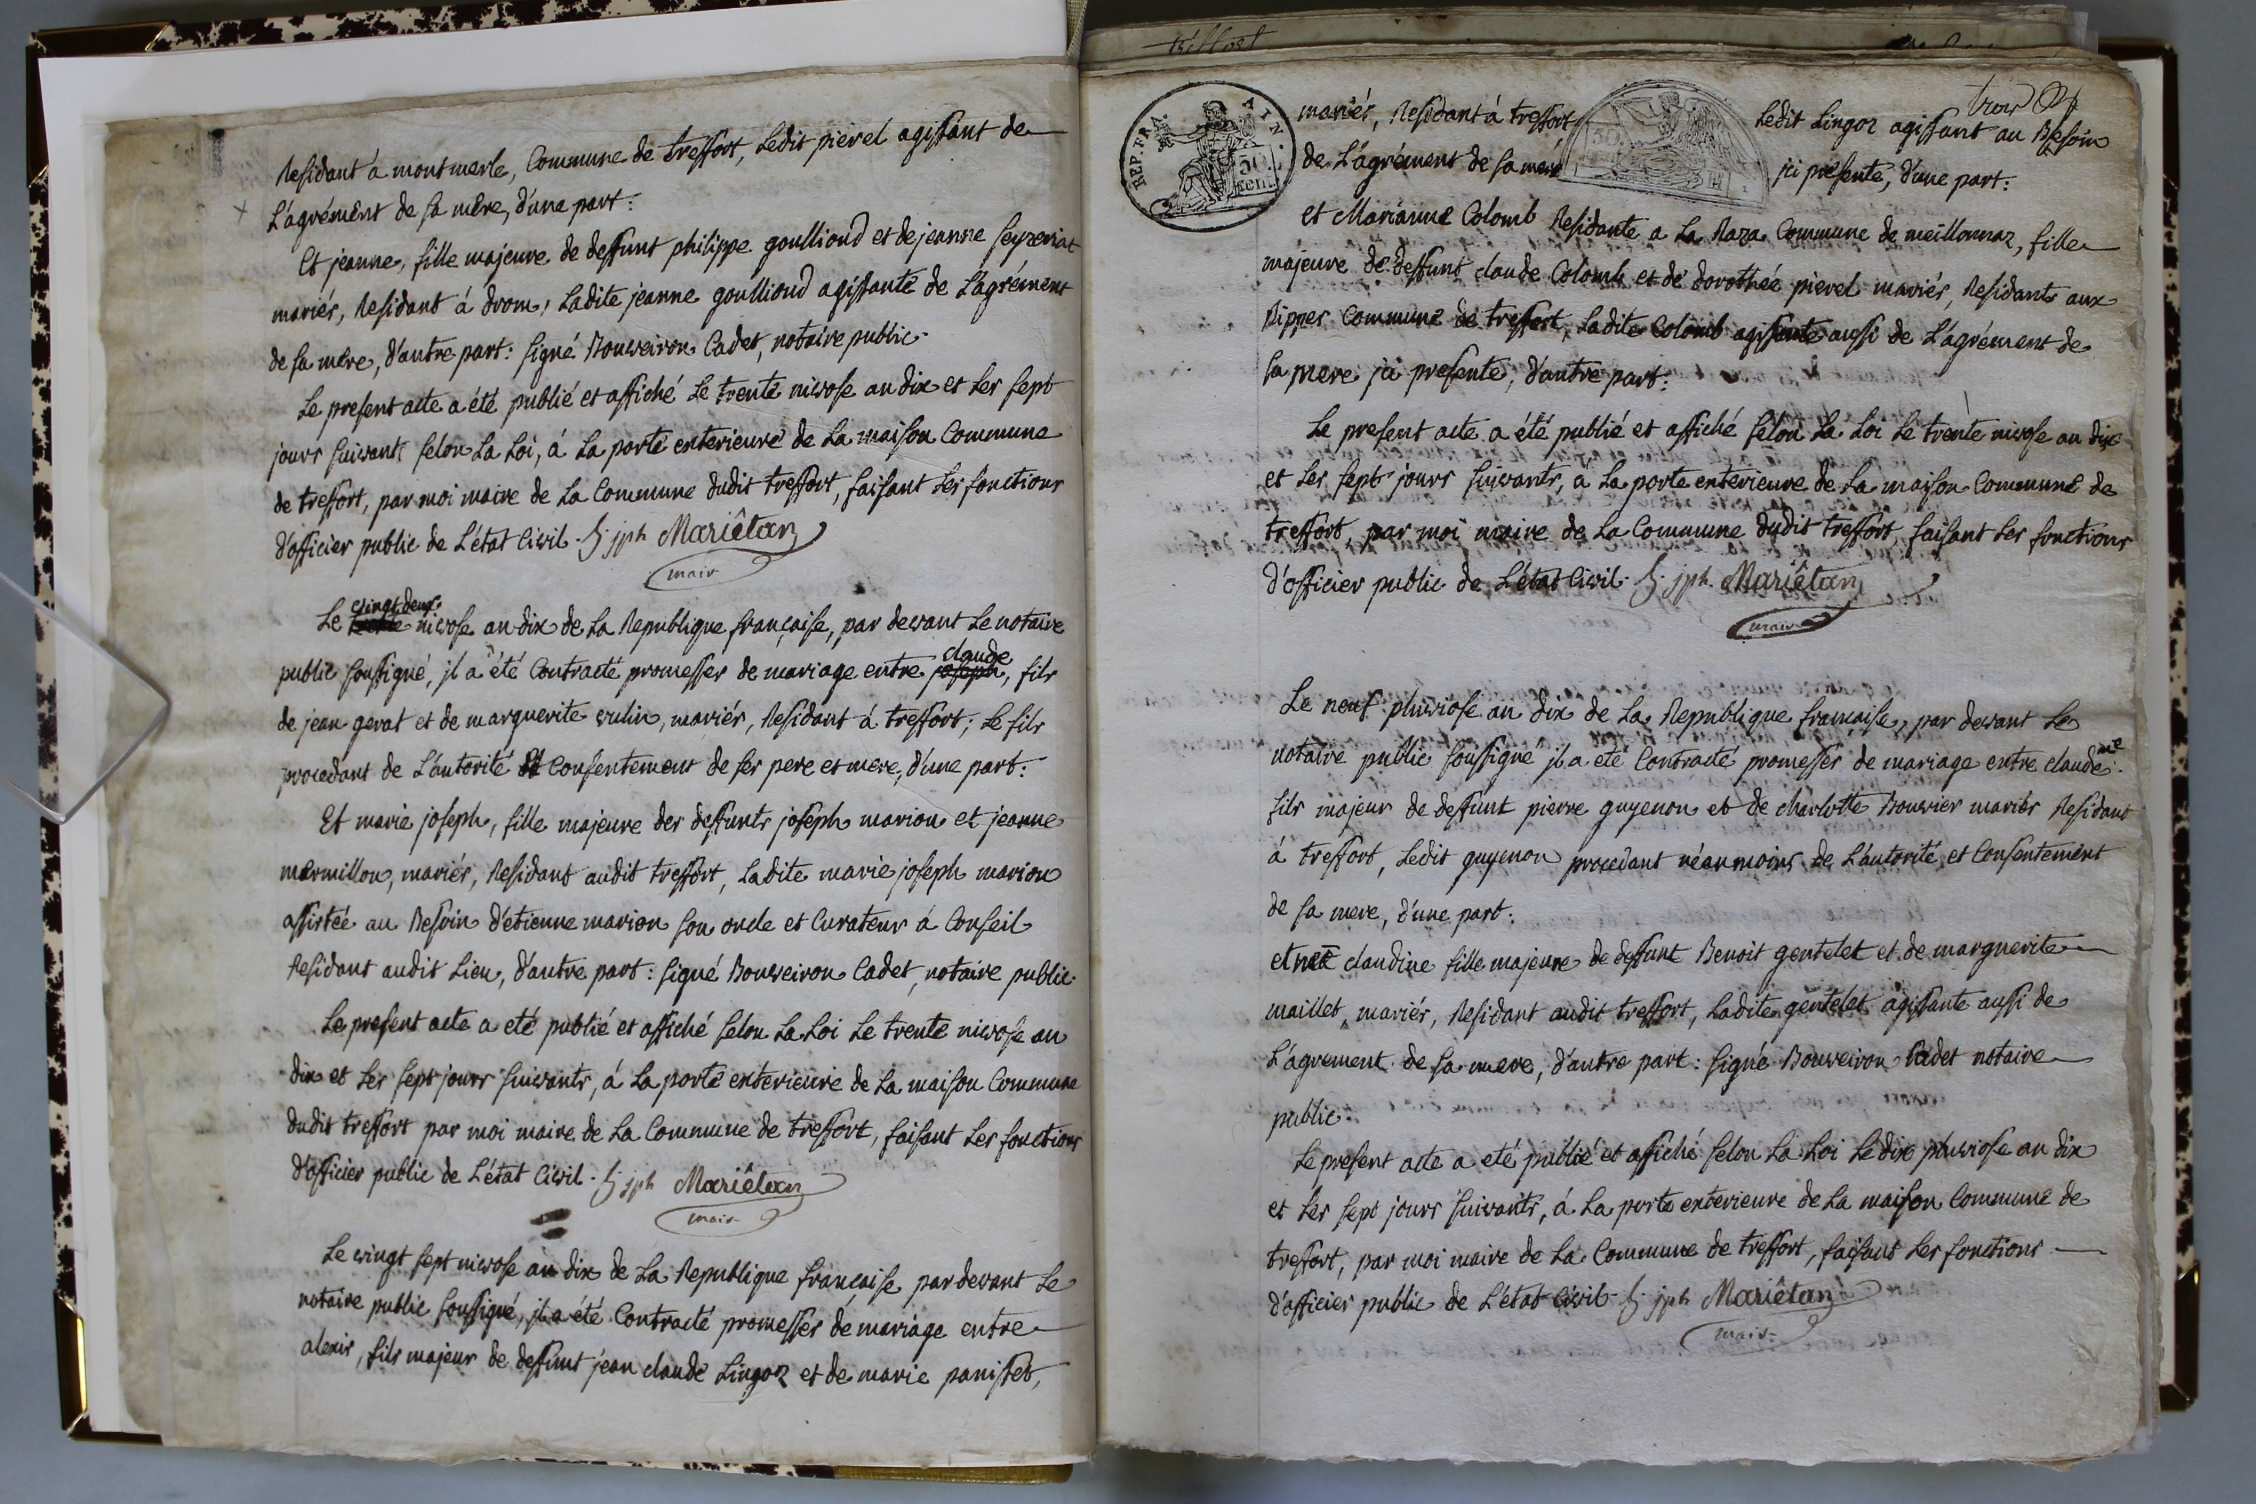 Residant à montmerle, Commune de treffort, Ledit pierel agissant de
L'agrément de sa mere, d'une part:
Et jeanne, fille majeure de deffunt philippe goulliond et de jeanne seyzeriat
mariés, Residant á drom, Ladite jeanne goulliond agissante de L'agrément
de sa mere, d'autre part: signé Bouveiron Cadet, notaire public.
Le present acte a été publié et affiché Le trente nivose an dix et Les sept
jours suivants selon La Loi, á La porte exterieure de La maison Commune
de treffort, par moi maire de La Commune dudit treffort, faisant Les fonctions
d'officier public de L'état Civil. jph Mariêtan
mair
Le vingt deux nivose an dix de La Republique française, par devant Le notaire
public soussigné, jl a été Contracté promesses de mariage entre claude, fils
de jean gerat et de marguerite vulin, mariés, Residant á treffort; Le fils
procedant de L'autorité et Consentement de ses pere et mere, d'une part:
Et marie joseph, fille majeure des deffunts joseph marion et jeanne
mermillon, mariés, Residant audit treffort, Ladite marie joseph marion
assistée au Besoin d'etienne marion son oncle et Curateur á Conseil
Residant audit Lieu, d'autre part: signé Bouveiron Cadet, notaire public.
Le present acte a eté publié et affiché selon La Loi Le trente nivose an
dix et Les sept jours suivants, á La porte exterieure de La maison Commune
dudit treffort par moi maire de La Commune de treffort, faisant Les fonctions
d'officier public de L'état Civil. jph Mariêtan
mair
Le vingt sept nivose an dix de La Republique française par devant Le
notaire public soussigné, jl a été Contracté promesses de mariage entre
alexis, fils majeur de deffunt jean claude Lingoz et de marie panisset,
trois
REP. FRA. AIN.
50 cent.
mariés, Residant á treffort Ledit Lingoz agissant au Besoin
de L'agrément de sa mere jci presente, d'une part:
et Marianne Colomb Residante a La Raza Commune de meillonnaz, fille
majeure de deffunt claude Colomb et de dorothée pierel mariés, Residants aux
Rippes Commune de treffort, Ladite Colomb agissante aussi de L'agrément de
sa mere jci presente, d'autre part:
Le present acte a été publié et affiché selon La Loi Le trente nivose an dix
et Les sept jours suivants, á La porte exterieure de La maison Commune de
treffort, par moi maire de La Commune dudit treffort, faisant Les fonctions
d'officier public de L'état Civil. jph. Mariêtan
mair
Le neuf pluviose an dix de La Republique française, par devant Le
notaire public soussigné jl a eté Contracté promesses de mariage entre claude me
fils majeur de deffunt pierre guyenon et de charlotte Bouvier mariés Residant
á treffort, Ledit guyenon procedant néanmoins de L'autorité et Consentement
de sa mere, d'une part:
et claudine fille majeure de deffunt Benoit gentelet et de marguerite
maillet, mariés, Residant audit treffort, Ladite gentelet agissante aussi de
L'agrement de sa mere, d'autre part: signé Bouveiron Cadet notaire
public.
Le present acte a eté publié et affiché selon La Loi Le dix pluviose an dix
et Les sept jours suivants, á La porte exterieure de La maison Commune de
treffort, par moi maire de La Commune de treffort, faisant Les fonctions
d'officier public de L'état Civil. jph Mariêtan
mair